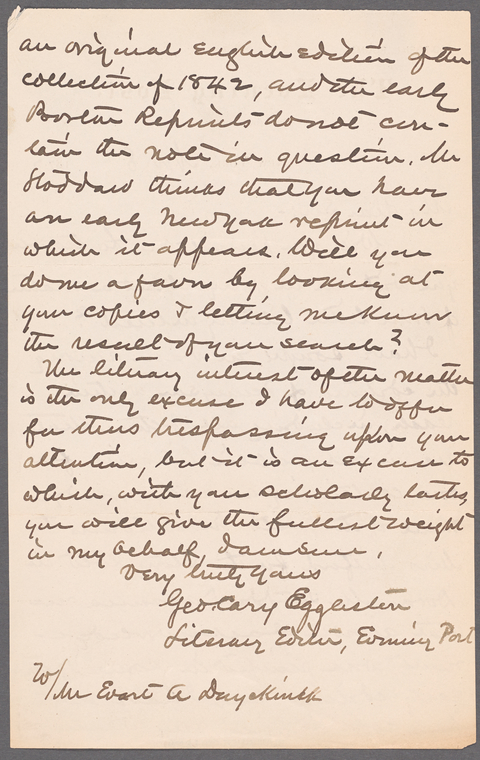 an original English edition of the
collection of 1842, and the early
Boston Reprints do not con-
tain the note in question. Mr
Stoddard thinks that you have
an early New York reprint in
which it appears. Will you
do me a favor by looking at
your copies & letting me know
the result of your search?
The literary interest of the matter
is the only excuse I have to offer
for thus trespassing upon your
attention, but it is an excuse to
which, with your scholarly tastes,
you will give the fullest weight
in my behalf, I am sure.
Very truly yours
Geo. Cary Eggleston
Literary Editor, Evening Post
To/
Mr Evart A Duyckinck